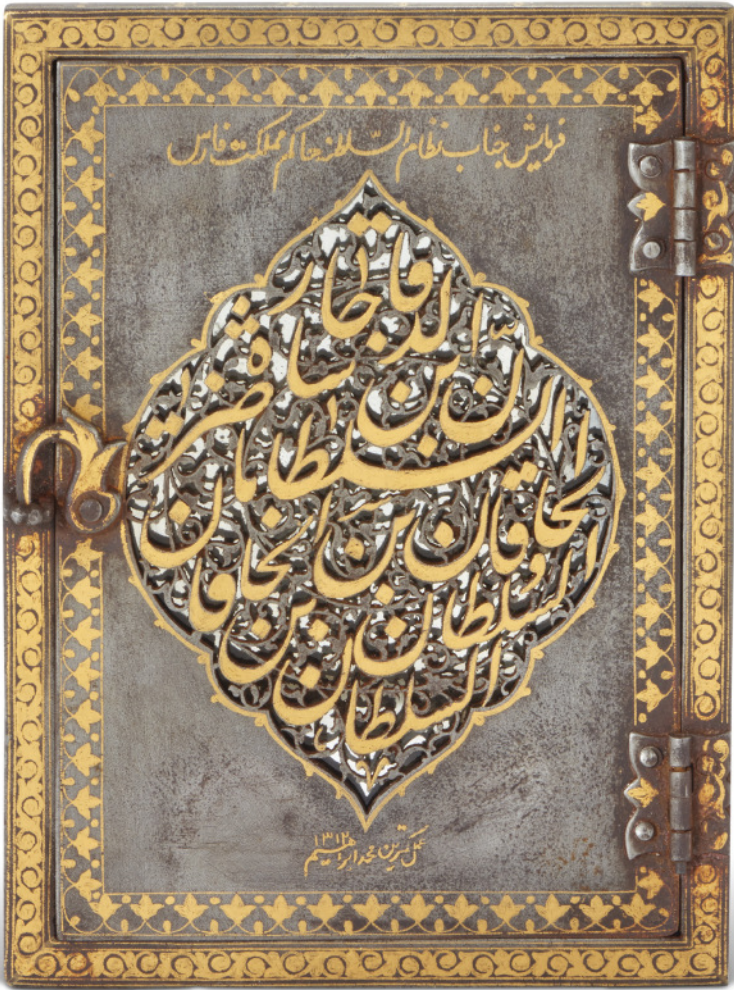 فرمایش جناب نظام السلطنه حاکم مملکت فارس
السلطان بن السلطان
و الخاقان بن الخاقان
السلطان ناصر
الدین شاه قاجار
عمل کمترین محمد ابراهیم ١٣١٢